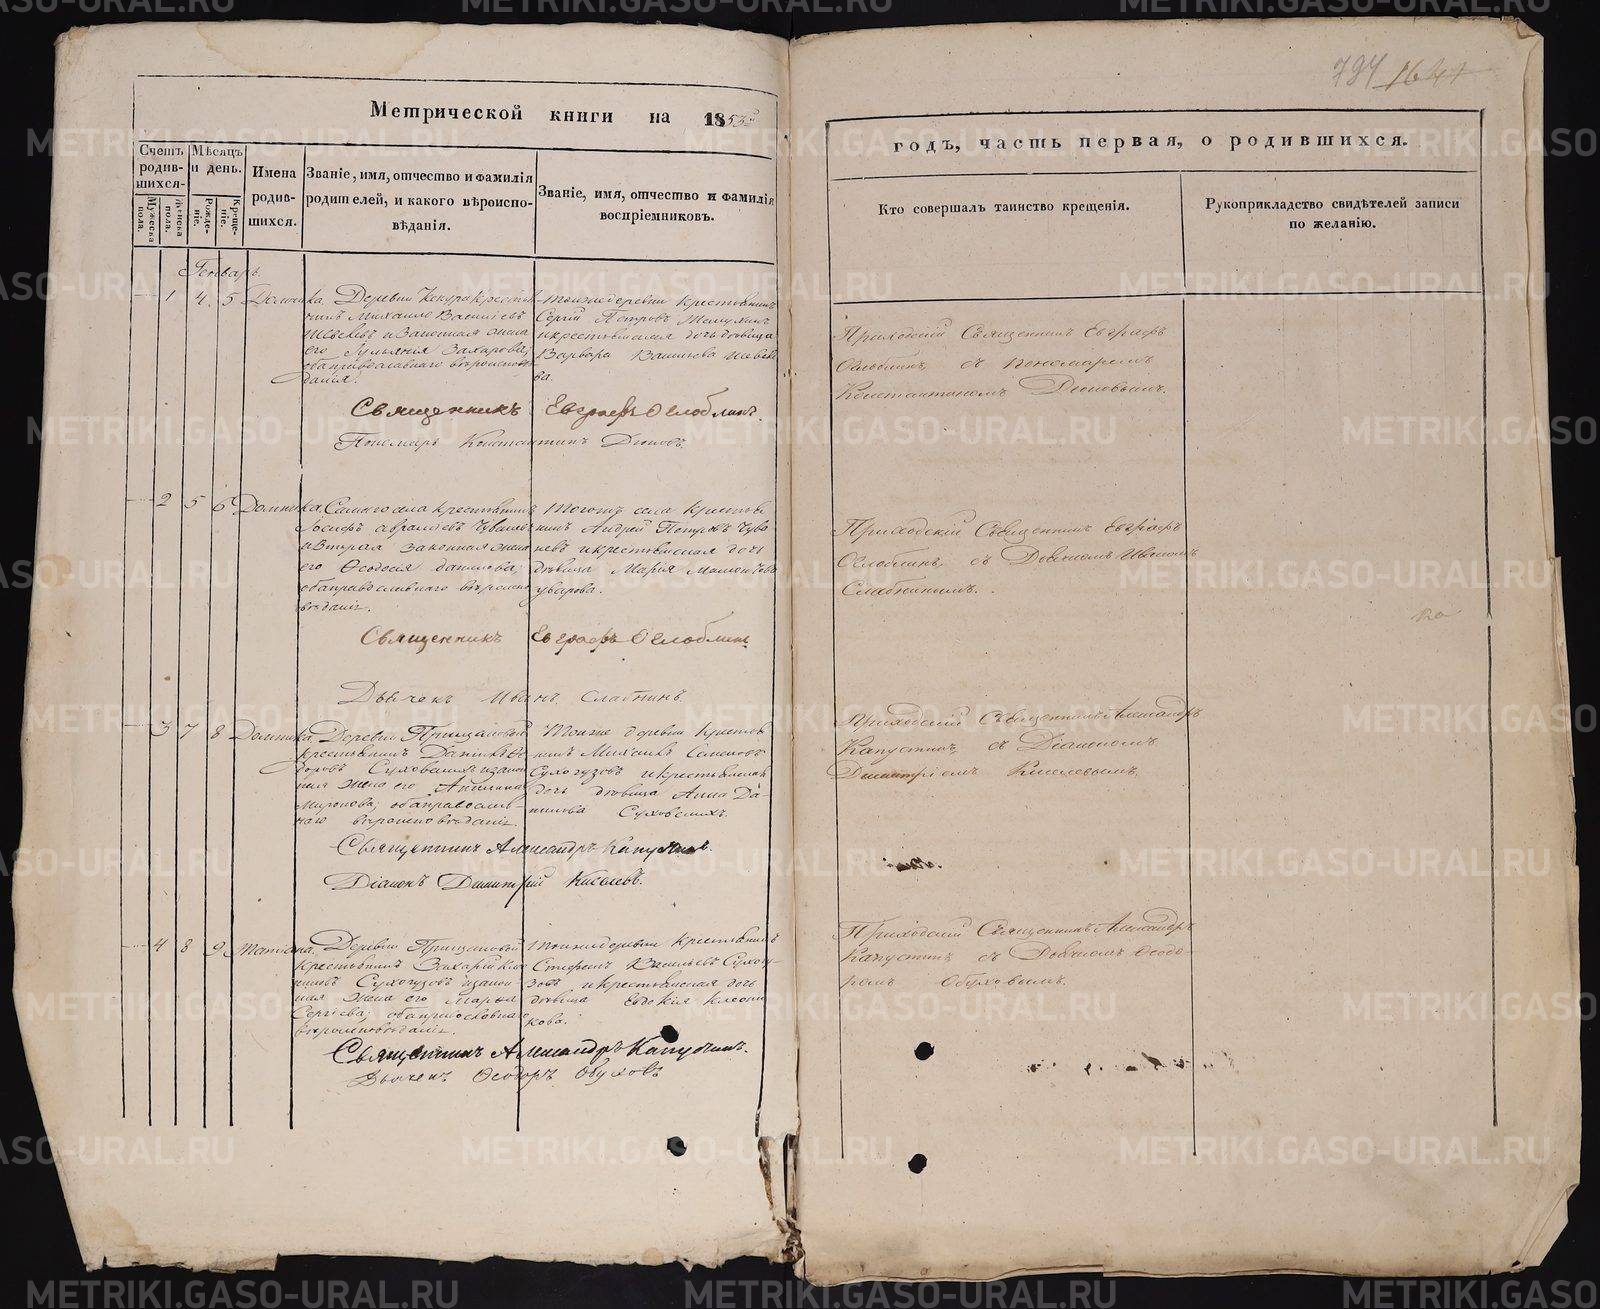 794 1641
Метрической книги на 1853й
годъ, часть первая, о родившихся.
Счетъ родившихся.
Мужеска пола.
Женска пола.
Мѣсяцъ и день.
Рожденіе.
Крещеніе.
Имена родившихся.
Званіе, имя, отчество и фамилія родителей, и какого вѣроисповѣданія.
Званіе, имя, отчество и фамилія воспріемниковъ.
Кто совершалъ таинство крещенія.
Рукоприкладство свидѣтелей записи по желанію.
Генварь.
1 4. 5 Домника.
Деревни крестья-
нинъ Михаило Василіевъ
и законная жена
его Іульянія Захарова;
оба православнаго вѣроиспов-
данія.
тойже деревни крестьянинъ
Сергій Петровъ
и крестьянская дочь дѣвица
Варвара
ва.
Приходскій Священникъ Евграфъ
Оглоблинъ, съ Пономаремъ
Константиномъ Дюковымъ.
Священникъ Евграфъ Оглоблинъ.
Пономарь Константинъ Дюковъ.
2 5 6 Домника.
Самаго села крестьянинъ
Іосифъ
и вторая законная жена
его Ѳеодосія Данилова;
оба православнаго вѣроиспо-
вѣданія.
Тогожъ села крестья-
нинъ Андрей Петровъ Чува-
шевъ и крестьянская дочь
дѣвица Марія
уварова.
Приходскій Священникъ Евграфъ
Оглоблинъ, съ Дьячкомъ Иваномъ
Слабнинымъ.
Священникъ Евграфъ Оглоблинъ
Дьячекъ Иванъ Слабнинъ
3 7 8 Домника.
Деревни Прищановой
крестьянинъ Данила Ѳе-
доровъ Суховскихъ и закон-
ная жена его Акилина
Миронова; оба православ-
наго вѣроисповѣданія.
Тойже деревни крестья-
нинъ Михаилъ Семеновъ
Сухогузовъ и крестьянская
дочь дѣвица Анна Да-
нилова Суховскихъ.
Приходскій Священникъ Александръ
Капустинъ, съ Діакономъ
Димитріемъ Киселевымъ.
Священникъ Александръ Капустинъ.
Діаконъ Димитрій Киселевъ.
4 8 9 Татіана.
Деревни Прищановой
крестьянинъ Захарій Клео-
никовъ Сухогузовъ и закон-
ная жена его Марѳа
Сергіева; оба православнаго
вѣроисповѣданія.
тойже деревни крестьянинъ
Стефанъ Васильевъ Сухогу-
зовъ и крестьянская дочь
дѣвица Евдокія Клеони-
кова.
Приходскій Священникъ Александръ
Капустинъ съ Дьячкомъ Ѳеодо-
ромъ Обуховымъ.
Священникъ Александръ Капустинъ.
Дьячекъ Ѳеодоръ Обуховъ
METRIKI.GASO-URAL.RU